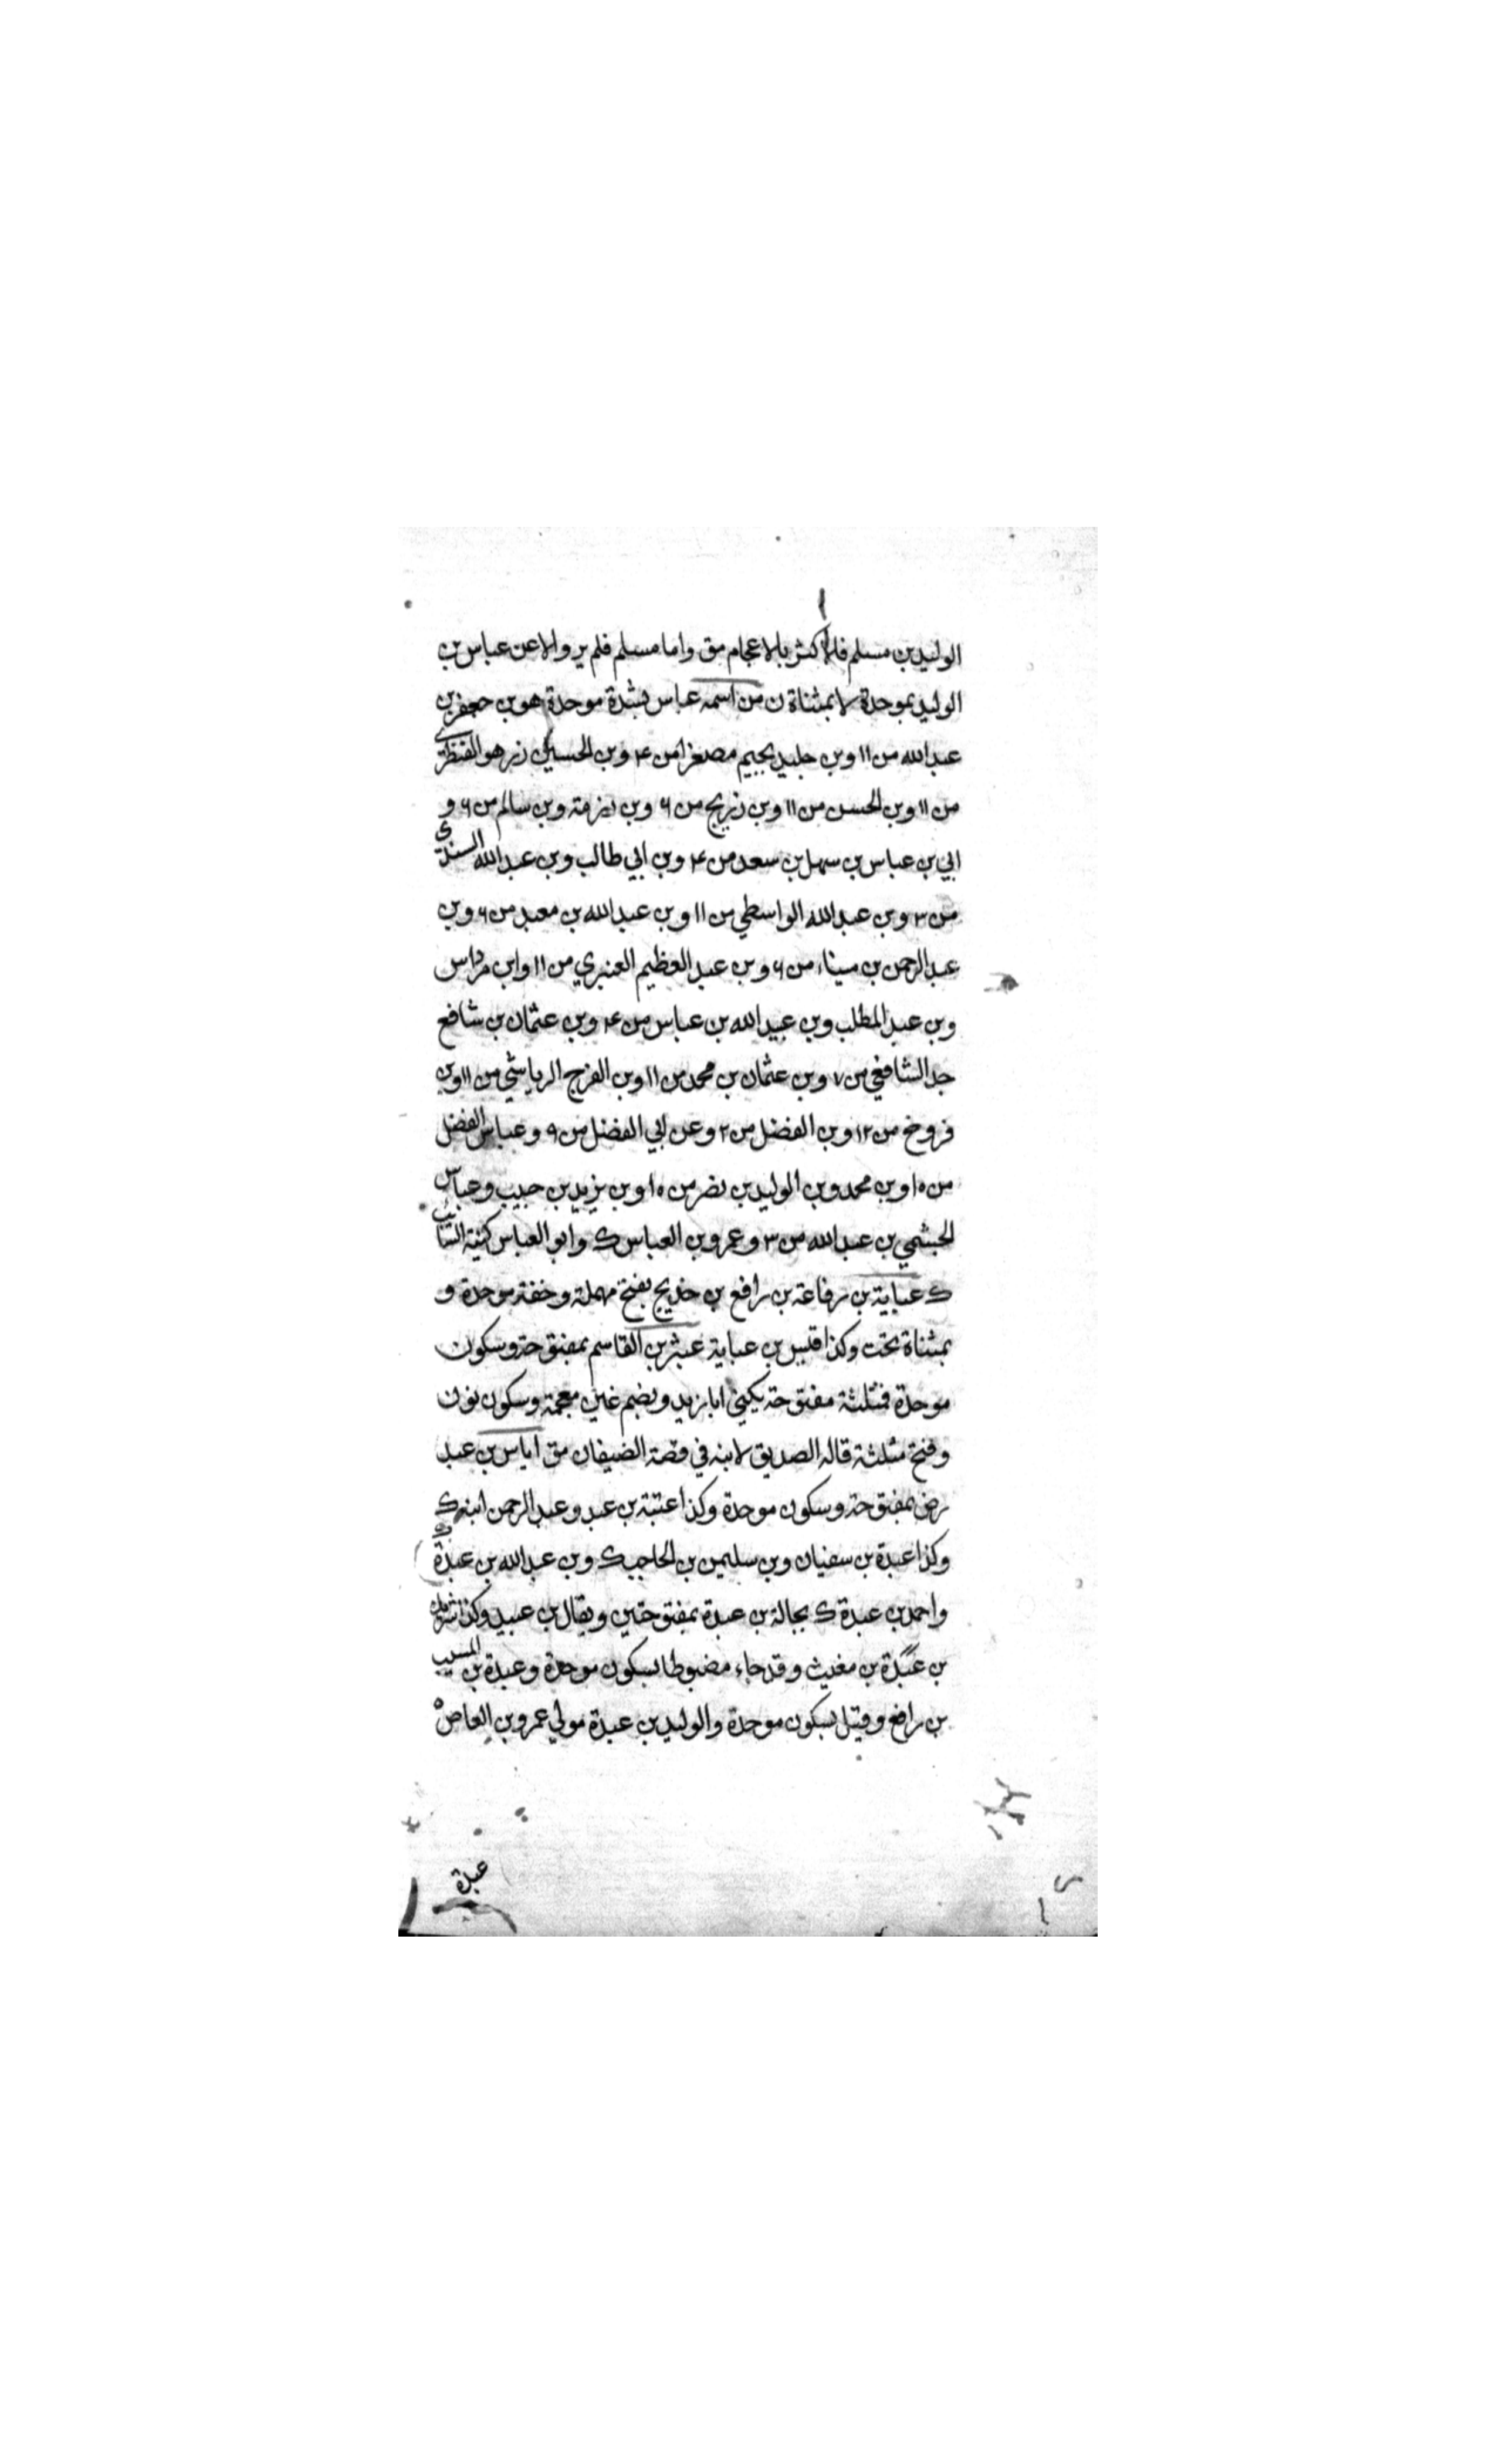 الوليد بن مسلم فالاكثر بالاعجام مق واما مسلم فلم يرو الا عن عباس بن
الوليد بموحدة لا بمثناة ن من اسمه عباس بشدة موحدة هو بن جعفر بن
عبد الله من ١١ وبن جليد بجيم مصغرا من ۴ وبن الحسين هو القنطرى
من ١١ وبن الحسن من ١١ وبن ذريح من ۶ وبن وبن سالم من ۶ و
ابي بن عباس بن سهل بن سعد من ۴ وبن ابي طالب وبن عبد الله السندى
من ٣ وبن عبد الله الواسطي من ١١ وبن عبد الله بن معبد من ۶ وبن
عبد الرحمن بن ميناء من ۶ وبن عبد العظيم العنبري من ١١ وابن مرداس
وبن عبد المطلب وبن عبيد الله بن عباس من ۴ وبن عثمان بن شافع
جد الشافعي من ٧ وبن عثمان بن محمد من ١١ وبن الفرج الرياشي من ١١ وبن
فروخ من ١٢ وبن الفضل من ٢ وعن ابي الفضل من ٩ وعباس الفضل
من ١٥ وبن محمد وبن الوليد بن نصر من ١٥ وبن يزيد بن حبيب وعباس
الجشمي بن عبد الله من ٣ وعمرو بن العباس ك وابو العباس كنية السائب
ك عباية بن رفاعة بن رافع بن خديج بفتح مهملة وخفة موحدة و
بمثناة تحت وكذا قيس بن عباية عبثر بن القاسم بمفتوحة وسكون
موحدة فمثلثة مفتوحة يكنى ابا زبيد وبضم غين معجمة وسكون نون
وفتح مثلثة قاله الصديق لابنه في قصة الضيفان مق اياس بن عبد
رض بمفتوحة وسكون موحدة وكذا عتبة بن عبد وعبد الرحمن ابنه ك
وكذا عبدة بن سفيان وبن سليمن بن الحاجب ك وبن عبد الله بن عبدة ك
واحمد بن عبدة ك بجالة بن عبدة بمفتوحتين ويقال بن عبيد وكذا
بن عبدة بن مغيث وقد جاء مضبوطا بسكون موحدة وعبدة بن المسيب
بن رافع وقيل بسكون موحدة والوليد بن عبدة مولي عمرو بن العاص
عبدة